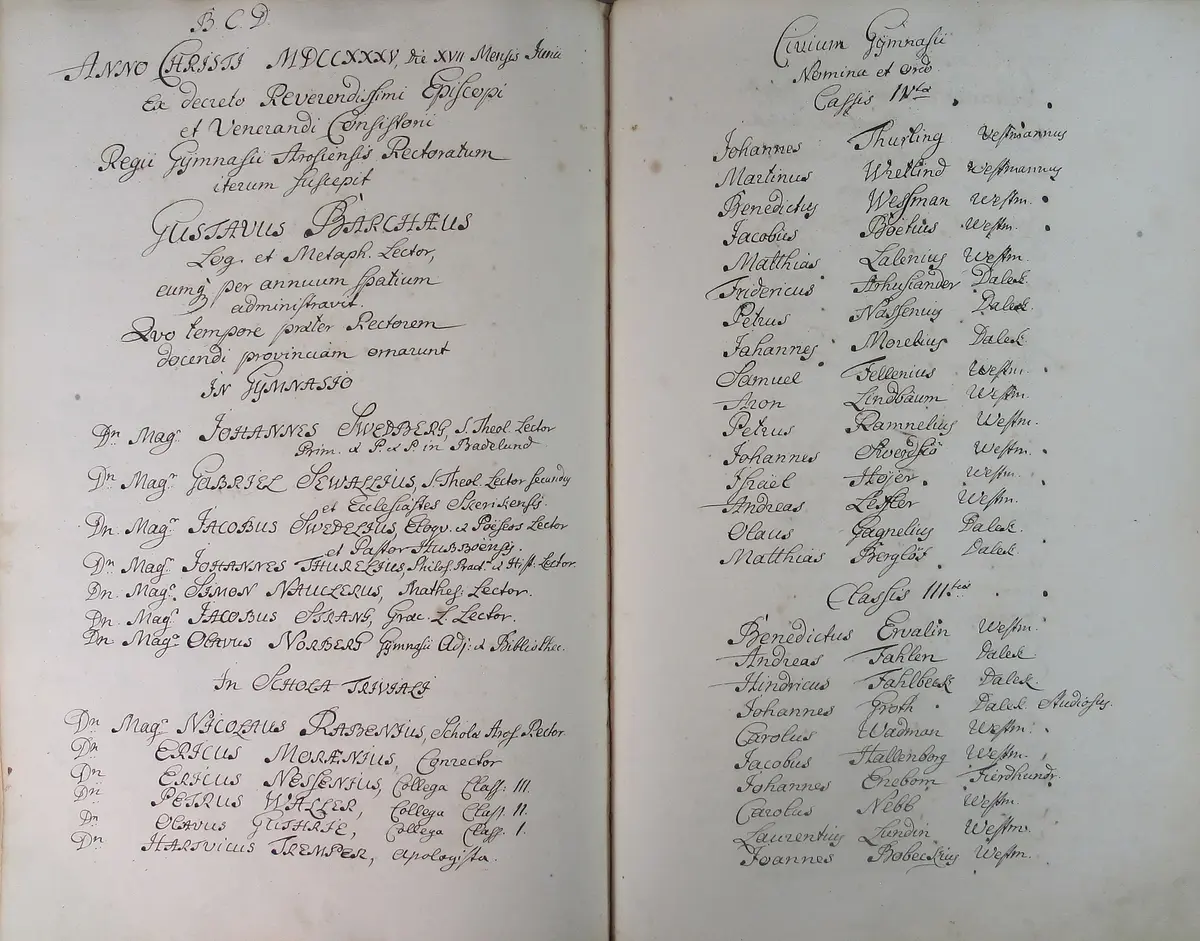 B. C. D.
ANNO CHRISTI MDCCXXXV, die XVII Mensis Junii
Ex decreto Reverendissimi Episcopi
et Venerandi Consistorii
Regii Gymnasii Arosiensis Rectoratum
iterum suscepit
GUSTAVUS BARCHÆUS
Log. et Metaph. Lector,
eumq; per annuum spatium
administravit.
Qvo tempore præter Rectorem
docendi provinciam ornarunt
IN GYMNASIO
Dn Magr JOHANNES SWEDBERG, S. Theol. Lector
Prim. & P. & P. in Badelund
Dn Magr GABRIEL SEWALLIUS, S. Theol. Lector Secundq
et Ecclesiastes Skerikensis.
Dn Magr JACOBUS SWEDELIUS, Eloqv. & Poëseos Lector
et Pastor HUBBOËNSIS.
Dn Magr JOHANNES THURELIUS, Philos. Pract. & Hist. Lector.
Dn. Magr SIMON NAUCLERUS, Mathes. Lector.
Dn. Magr JACOBUS STRANG, Græc. L. Lector.
Dn Magr OLAVUS NORBERG Gymnasii Adj: & Bibliothec.
In SCHOLA TRIVIALI
Dn Magr NICOLAUS RABENIUS, Scholæ Aros. Rector
Dn ERICUS MORÆNIUS, Conrector
Dn ERICUS NESSENIUS, Collega Class: III.
Dn PETRUS WALLER, Collega Class. II.
Dn OLAVUS GUTHRIE, Collega Class. I.
Dn HARTVICUS TREMPER, Apologista.
Civium Gymnasii
Nomina et ordo
Cassis IVtæ
Johannes Thurling Vestmannus
Martinus Wretlind Westmannus
Benedictus Wessman Westm.
Jacobus Boëtius Westm.
Matthias Salenius Westm.
Fridericus Arhusiander Dalek.
Petrus Nassenius Dalek.
Johannes Morelius Dalek
Samuel Fellenius Westm.
Aron Lindbaum Westm.
Petrus Ramnelius Westm.
Johannes Sverdsiö Westm.
Israël Höijer Westm.
Andreas Lexler Westm.
Olaus Gagnelius Dalek.
Matthias Berglöf Dalek.
Classis IIItiæ
Benedictus Ervalin Westm.
Andreas Fahlen Dalek
Hindricus Fahlbeck Dalek
Johannes Groth Dalek Studiosus.
Carolus Wadman Westm.
Jacobus Hallenborg Westm.
Johannes Enebom Fierdhundr.
Carolus Nebb Westm.
Laurentius Lundin Westm.
Joannes Bobeckius Westm.